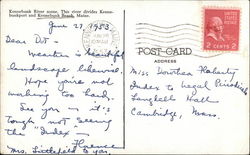 Kennebunk River scene. This river divides Kenne-
bunkport and Kennebunk Beach, Maine.
June 27 1953
Dear Dot
Weather is beautiful
landscape likewise.
Hope you're not
working too hard.
See you in it's
tough not seeing
the "Index"
Florence
Mrs. Littlefield says
POST CARD
ADDRESS
2 CENTS 2
Miss Dorothea Flaherty
Index to Legal Periodicals
Langdell Hall
Cambridge, Mass.